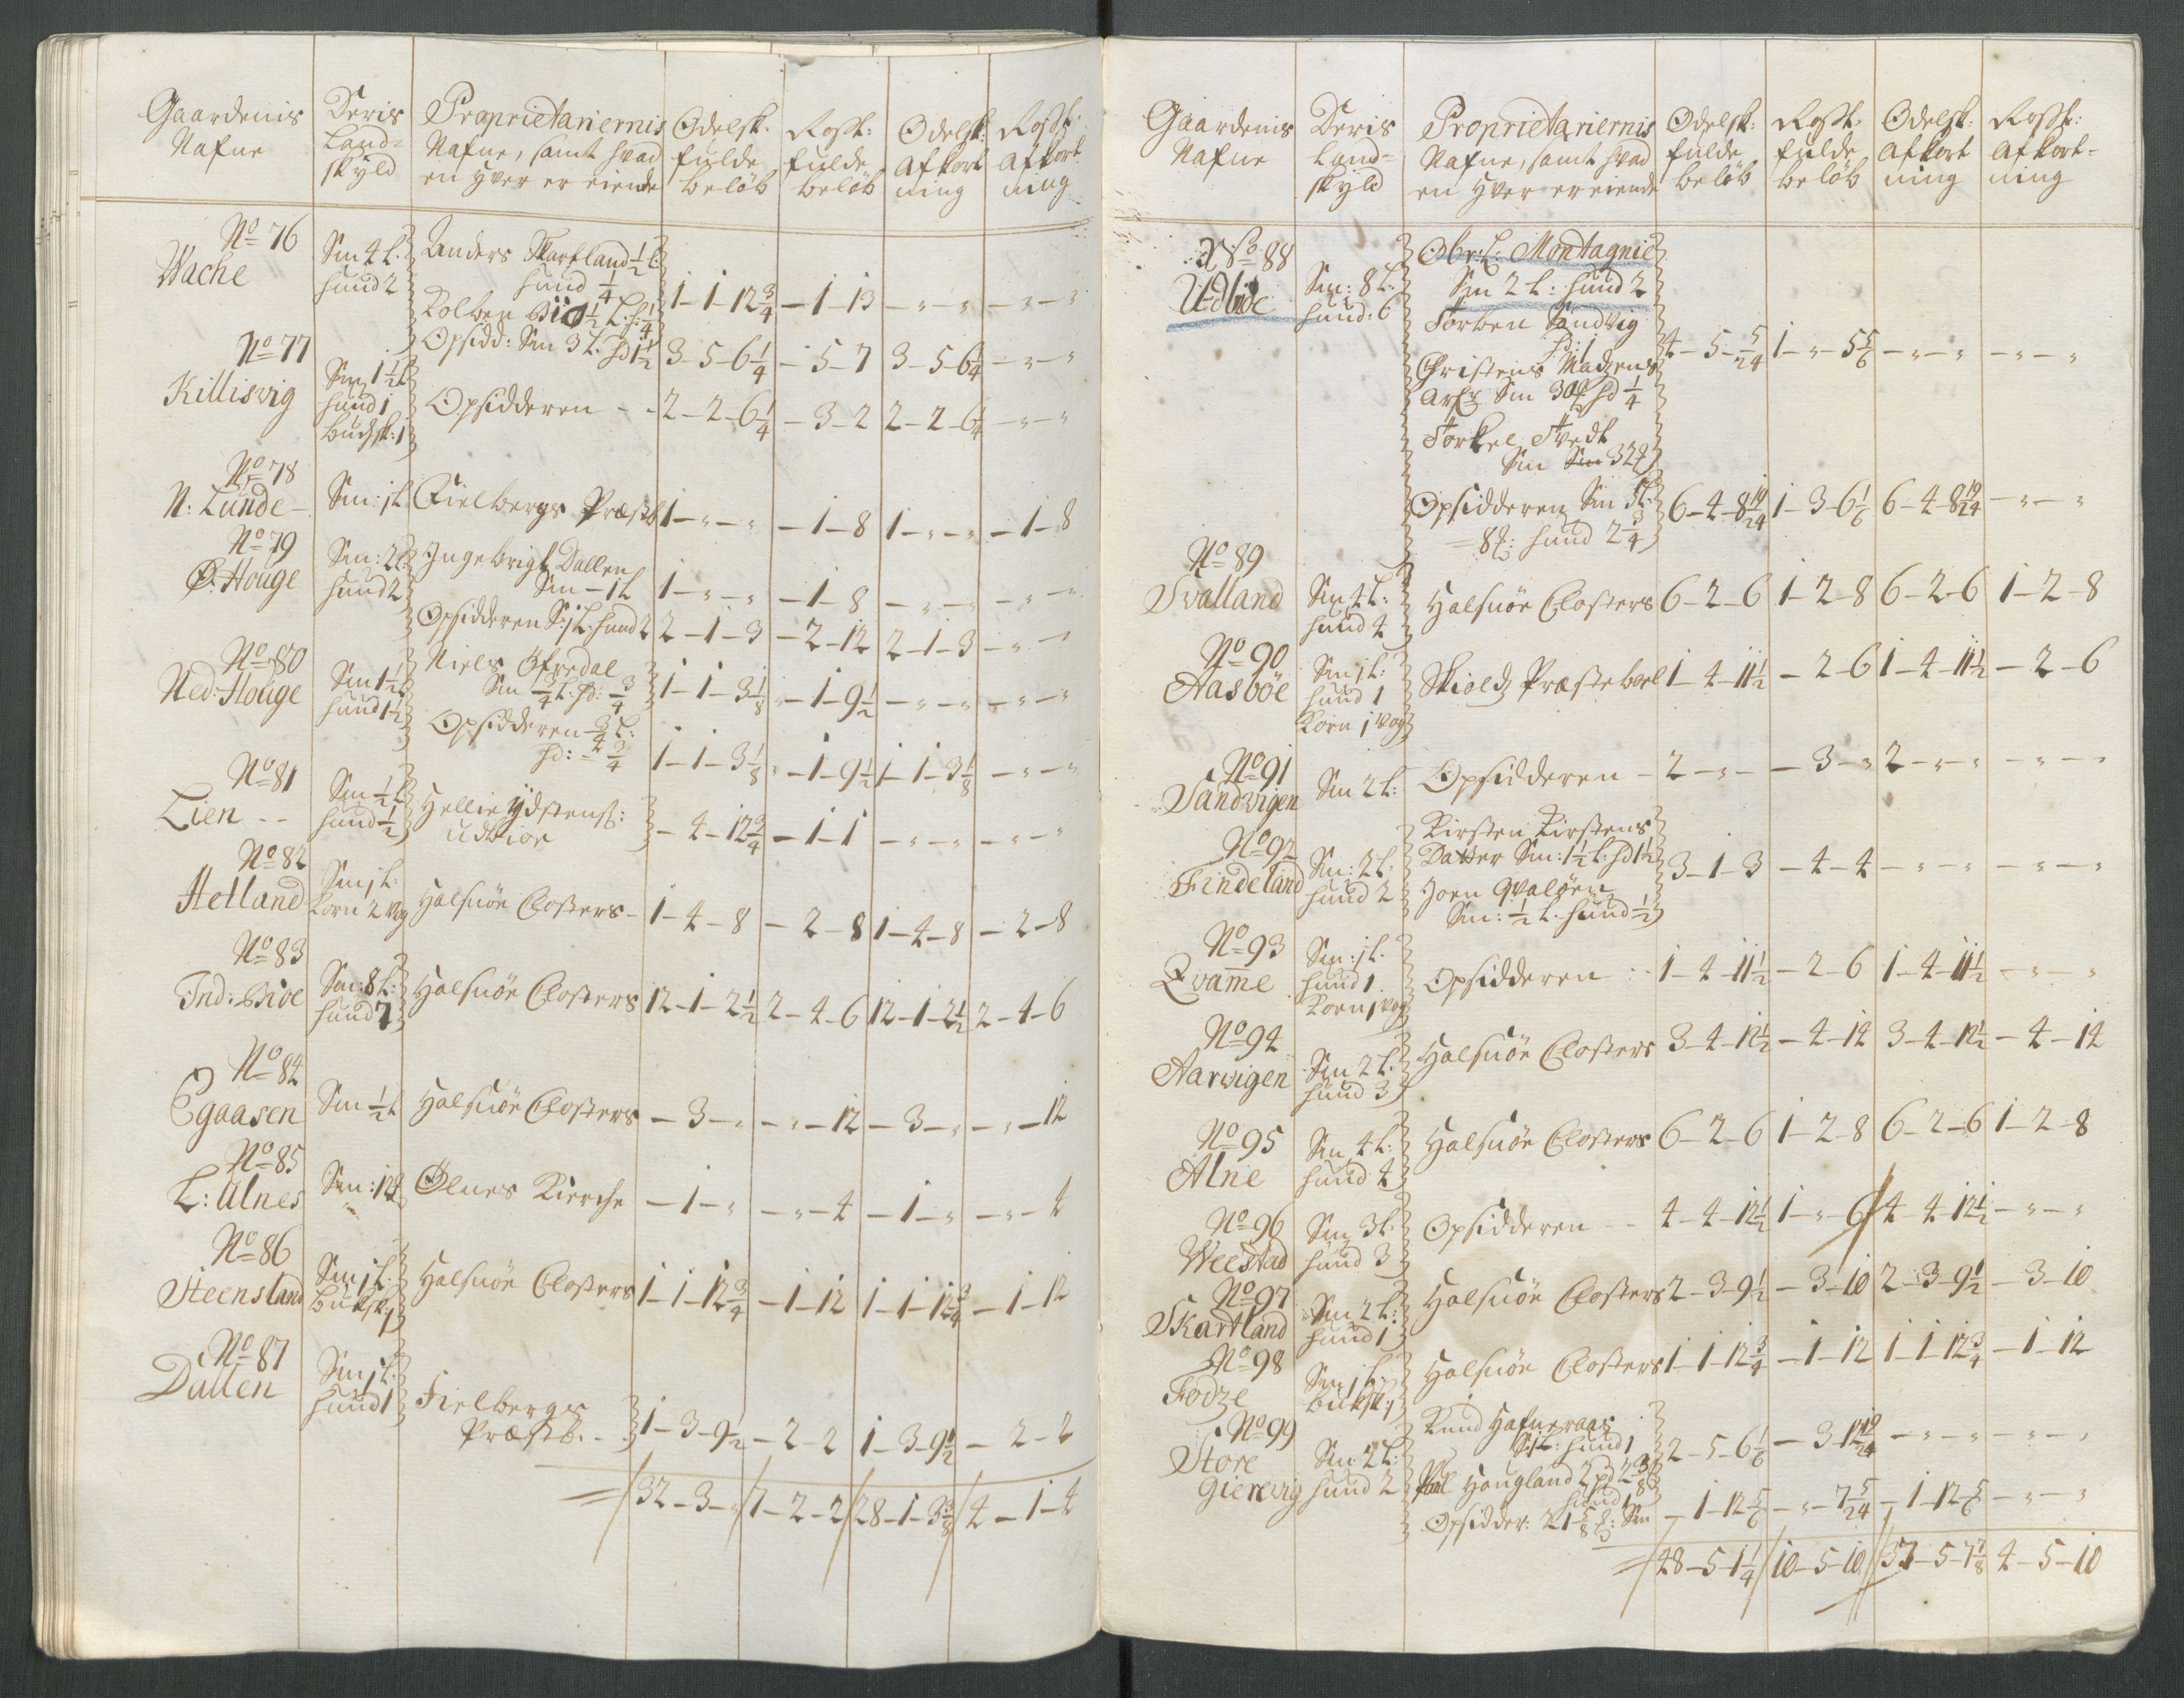 Gaardenis Nafne
Deris Land=skyld
Proprietariernis Nafne, samt hvad en hver er eiende
Odelsk. fulde beløb
Rosk: fulde beløb
Odelsk: Afkortning
Rosk: Afkortning
No 76
Wache
Sm 4 L. hund 2
Anders Skartland ½ L
hund ¼
Kolben Biø ½ L. h: ¼
1-1-12¾ -1-13 -"-" -"-"
Opsidd: Sm 3 L. hd 1½
3-5-6¼ -5-7 3-5-6¼ -"-"
No 77
Killisvig
Sm 1½ L
hund 1
buchsk: 1
Opsidderen - - 2-2-6¼ -3-2 2-2-6¼ -"-"
No 78
N: Lunde -
Sm: 1 L
Fielbergs Præstb 1-"-" -1-8 1-"-" -1-8
No 79
Ø: Houge
Sm: 2 L:
hund 2
Ingebrigt Dallen
Sm - 1 L 1-"-" -1-8 -"-" -"-"
Opsidderen S: 1 L: hund 2 2-1-3 -2-12 2-1-3 -"-"
No 80
Ned: Houge
Sm 1½ L
hund 1½
Niels Øfredal
Sm ¾ L. hd: ¾ 1-1-3⅛ -1-9½ -"-" -"-"
Opsidderen ¾ L:
hd: - ¾ 1-1-3⅛ -1-9½ 1-1-3⅛ -"-"
No 81
Lien - -
Sm ½ L
hund ½
Hellie Ydstens:
udbioe -4-12¾ -1-1 -"-" -"-"
No 82
Hetland
Sm 1 L:
Korn 2 Vog
Halsnöe Closters - 1-4-8 -2-8 1-4-8 -2-8
No 83
Ind: Bioe
Sm: 8 L:
hund 7
Halsnöe Closters 12-1-2½ 2-4-6 12-1-2½ 2-4-6
No 84
Egaasen
Sm ½ L
Halsnöe Closters -3-" -"-12 -3-" -"-12
No 85
L: Ulnes
Sm: 12
Ølnes Kierche -1-" -"-4 -1-" -"-4
No 86
Steensland
Sm 1 L.
buksk 1
Halsnöe Closters 1-1-12¾ -1-12 1-1-12¾ -1-12
No 87
Dallen
Sm 1 L.
hund 1
Fielbergs
Præstb. - 1-3-9½ -2-2 1-3-9½ -2-2
32-3-" 7-2-2 28-1-3⅜ 4-1-4
Gaardenis Nafne
Deris Land=skyld
Proprietariernis Nafne, samt hvad en hver er eiende
Odelsk: fulde beløb
Rosk. fulde beløb
Odelsk: Afkortning
Rosk: Afkort=ning
No 88
Udbioe
Sm: 8 L:
hund: 6
Obr: L. Montagnie
Sm 2 L: hund 2
Torben Sandvig
hd: 1
Christens Madzens
Arf: Sm 30 hd ¼
Torkel Tvedt
Sm 32
4-5-5/24 1-"-5⅚ -"-" -"-"
Opsidderen Sm 3 L:
8: hund 2¾ 6-4-8 19/24 1-3-6⅙ 6-4-8 19/24 -"-"
No 89
Svalland
Sm 4 L:
hund 4
Halsnöe Closters 6-2-6 1-2-8 6-2-6 1-2-8
No 90
Aasböe
Sm 1 L:
hund 1
Korn 1 Vog
Skiolds Præstebool 1-4-11½ -2-6 1-4-11½ -2-6
No 91
Sandvigen
Sm 2 L:
Opsidderen - 2-"- -3-" 2-"-" -"-"
No 92
Findeland
Sm: 2 L.
hund 2
Kirsten Kirstens
Datter Sm: 1½ L: hd 1½
Joen Qvaløen
Sm: ½ L. hund ½
3-1-3 -4-4 -"-" -"-"
No 93
Qvame
Sm: 1 L.
hund 1.
Korn 1 Vog
Opsidderen : - 1-4-11½ -2-6 1-4-11½ -"-"
No 94
Aarvigen
Sm 2 L.
hund 3
Halsnöe Closters 3-4-12½ -4-14 3-4-12½ -4-14
No 95
Alne
Sm 4 L:
hund 4
Halsnöe Closters 6-2-6 1-2-8 6-2-6 1-2-8
No 96
Weestad
Sm 3 L.
hund 3
Opsidderen - - 4-4-12½ 1-"-6 4-4-12½ -"-"
No 97
Skartland
Sm 2 L:
hund 1
Halsnöe Closters 2-3-9½ -3-10 2-3-9½ -3-10
No 98
Fodze
Sm 1 L.
buksk: 1
Halsnöe Closters 1-1-12¾ -1-12 1-1-12¾ -1-12
No 99
Store
Gierevig
Sm: 2 L:
hund 2
Knud Hafneraas
S: 1 L: hund 1
Hougland
hund 1
2-5-6⅙ -3-12 19/24 -"-" -"-"
Opsidder: Sm -1-12⅚ -"-7 5/24 -1-12⅚ -"-"
48-5-1¼ 10-5-10 37-5-7⅛ 4-5-10